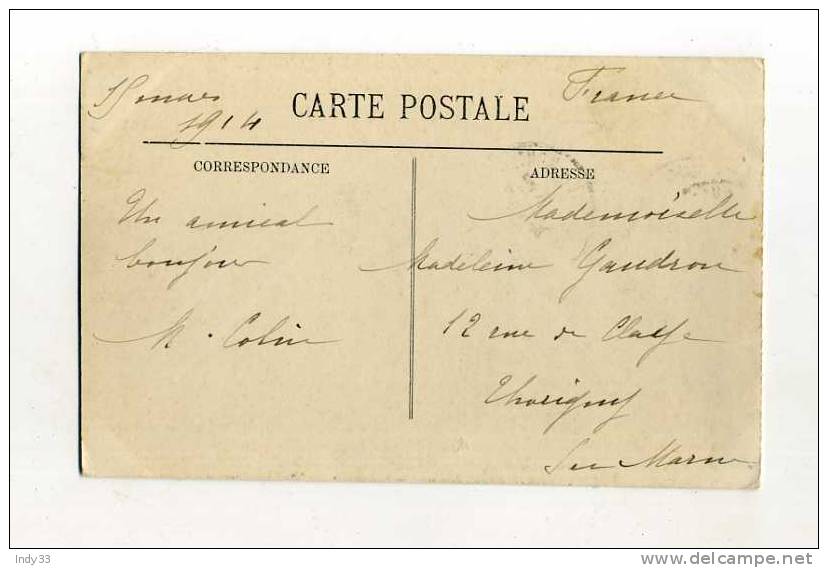 15 mars
1914
CARTE POSTALE
France
CORRESPONDANCE
Un amical
bonjour
M. Colin
ADRESSE
Mademoiselle
Madeleine Gaudron
12 rue de
Thorigny
Sur Marne
Indy33
www.delcampe.net